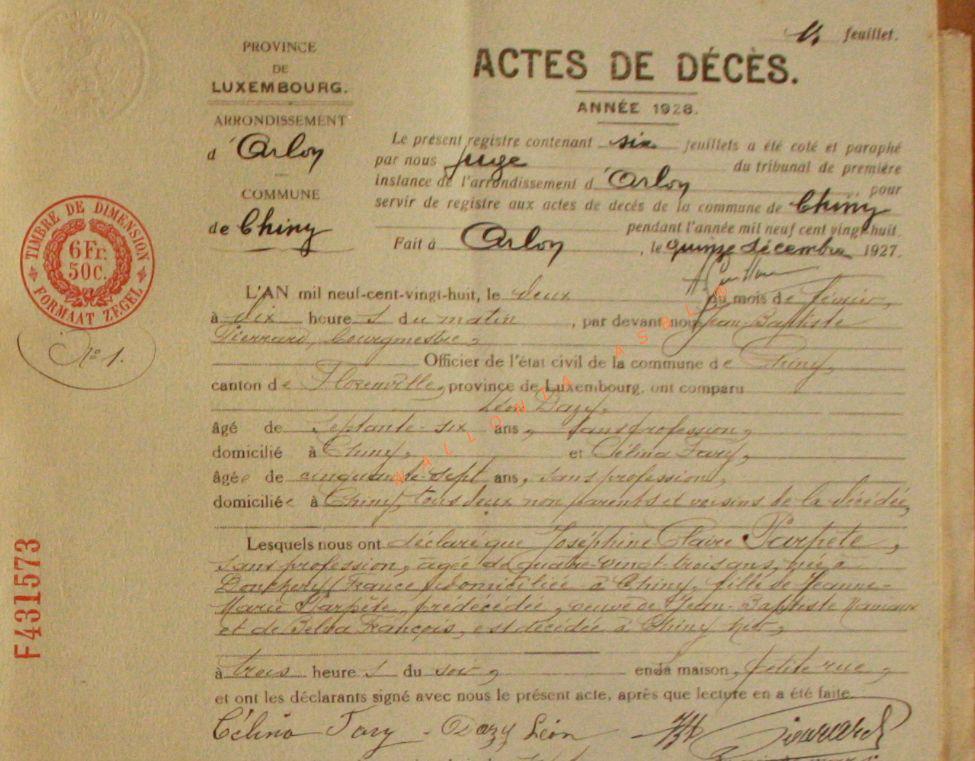 4 feuillet.
PROVINCE
DE
LUXEMBOURG.
ACTES DE DÉCÈS.
ANNÉE 1928.
ARRONDISSEMENT
d'Arlon
COMMUNE
de Chiny
Le présent registre contenant six feuillets a été coté et paraphé
par nous juge du tribunal de première
instance de l'arrondissement d'Arlon, pour
servir de registre aux actes de decés de la commune de Chiny
pendant l'année mil neuf cent vingt-huit.
Fait à Arlon, le quinze décembre 1927.
TIMBRE DE DIMENSION
6 Fr.
50C.
FORMAAT ZEGEL
N° 1.
F431573
L'AN mil neuf-cent-vingt-huit, le deux du mois de février,
à dix heures du matin, par devant nous Jean Baptiste
Pierrard, bourgmestre,
Officier de l'état civil de la commune de Chiny,
canton de Florenville, province de Luxembourg, ont comparu
Léon Dazy,
âgé de septante-six ans, sans profession,
domicilié à Chiny, et Célina Jary,
âgée de cinquante-sept ans, sans profession,
domiciliée à Chiny, tous deux non parents et voisins de la décédée,
Lesquels nous ont déclaré que Joséphine Claire Parpète,
sans profession, âgée de quatre-vingt-trois ans, née à
Donchery (France), domiciliée à Chiny, fille de Jeanne-
Marie Parpète, prédécédée, veuve de Jean-Baptiste
et de François, est décédée à Chiny hier,
à trois heures du soir, en sa maison, petite rue,
et ont les déclarants signé avec nous le présent acte, après que lecture en a été faite.
Célina Jary - Dazy Léon
WALLONIA ASBL